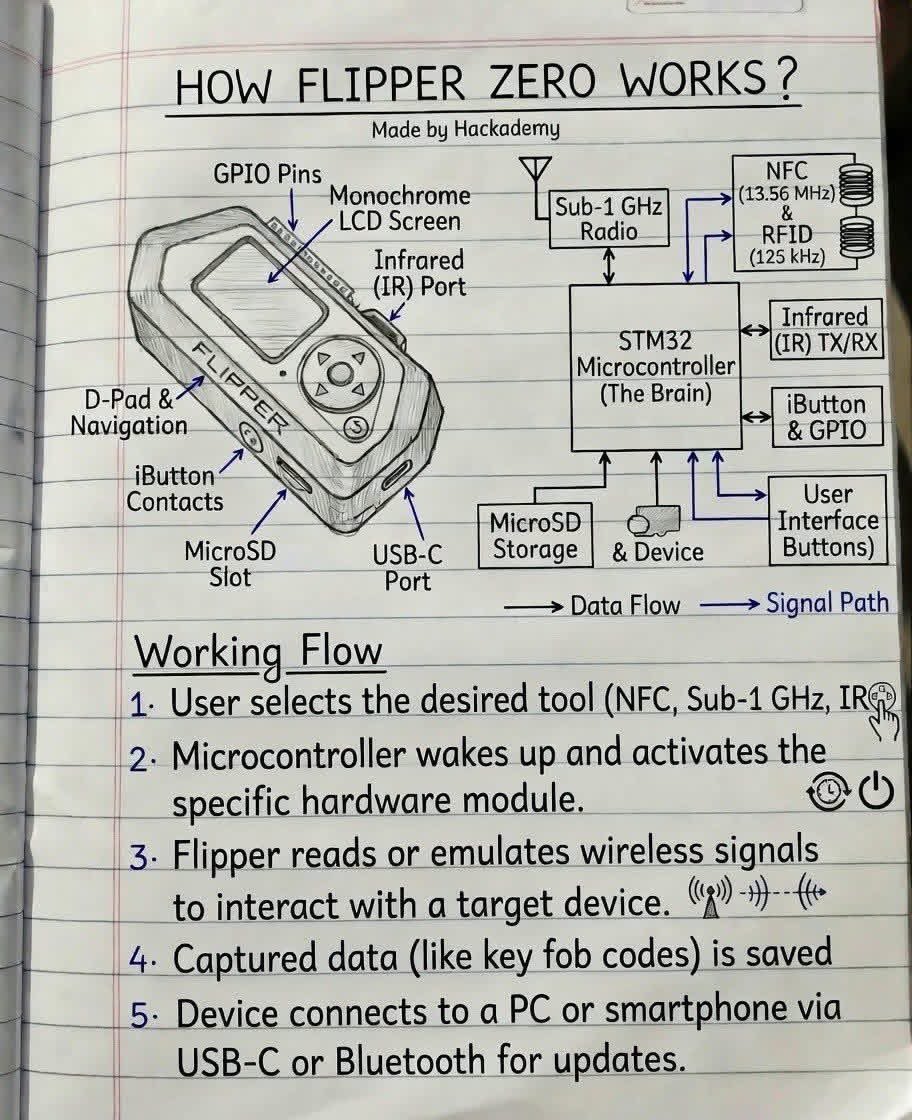 HOW FLIPPER ZERO WORKS?
Made by Hackademy
GPIO Pins
Monochrome
LCD Screen
Infrared
(IR) Port
FLIPPER
D-Pad &
Navigation
iButton
Contacts
MicroSD
Slot
USB-C
Port
Sub-1 GHz
Radio
NFC
(13.56 MHz)
&
RFID
(125 kHz)
STM32
Microcontroller
(The Brain)
Infrared
(IR) TX/RX
iButton
& GPIO
MicroSD
Storage
& Device
User
Interface
Buttons)
Data Flow
Signal Path
Working Flow
1. User selects the desired tool (NFC, Sub-1 GHz, IR
2. Microcontroller wakes up and activates the
specific hardware module.
3. Flipper reads or emulates wireless signals
to interact with a target device.
4. Captured data (like key fob codes) is saved
5. Device connects to a PC or smartphone via
USB-C or Bluetooth for updates.